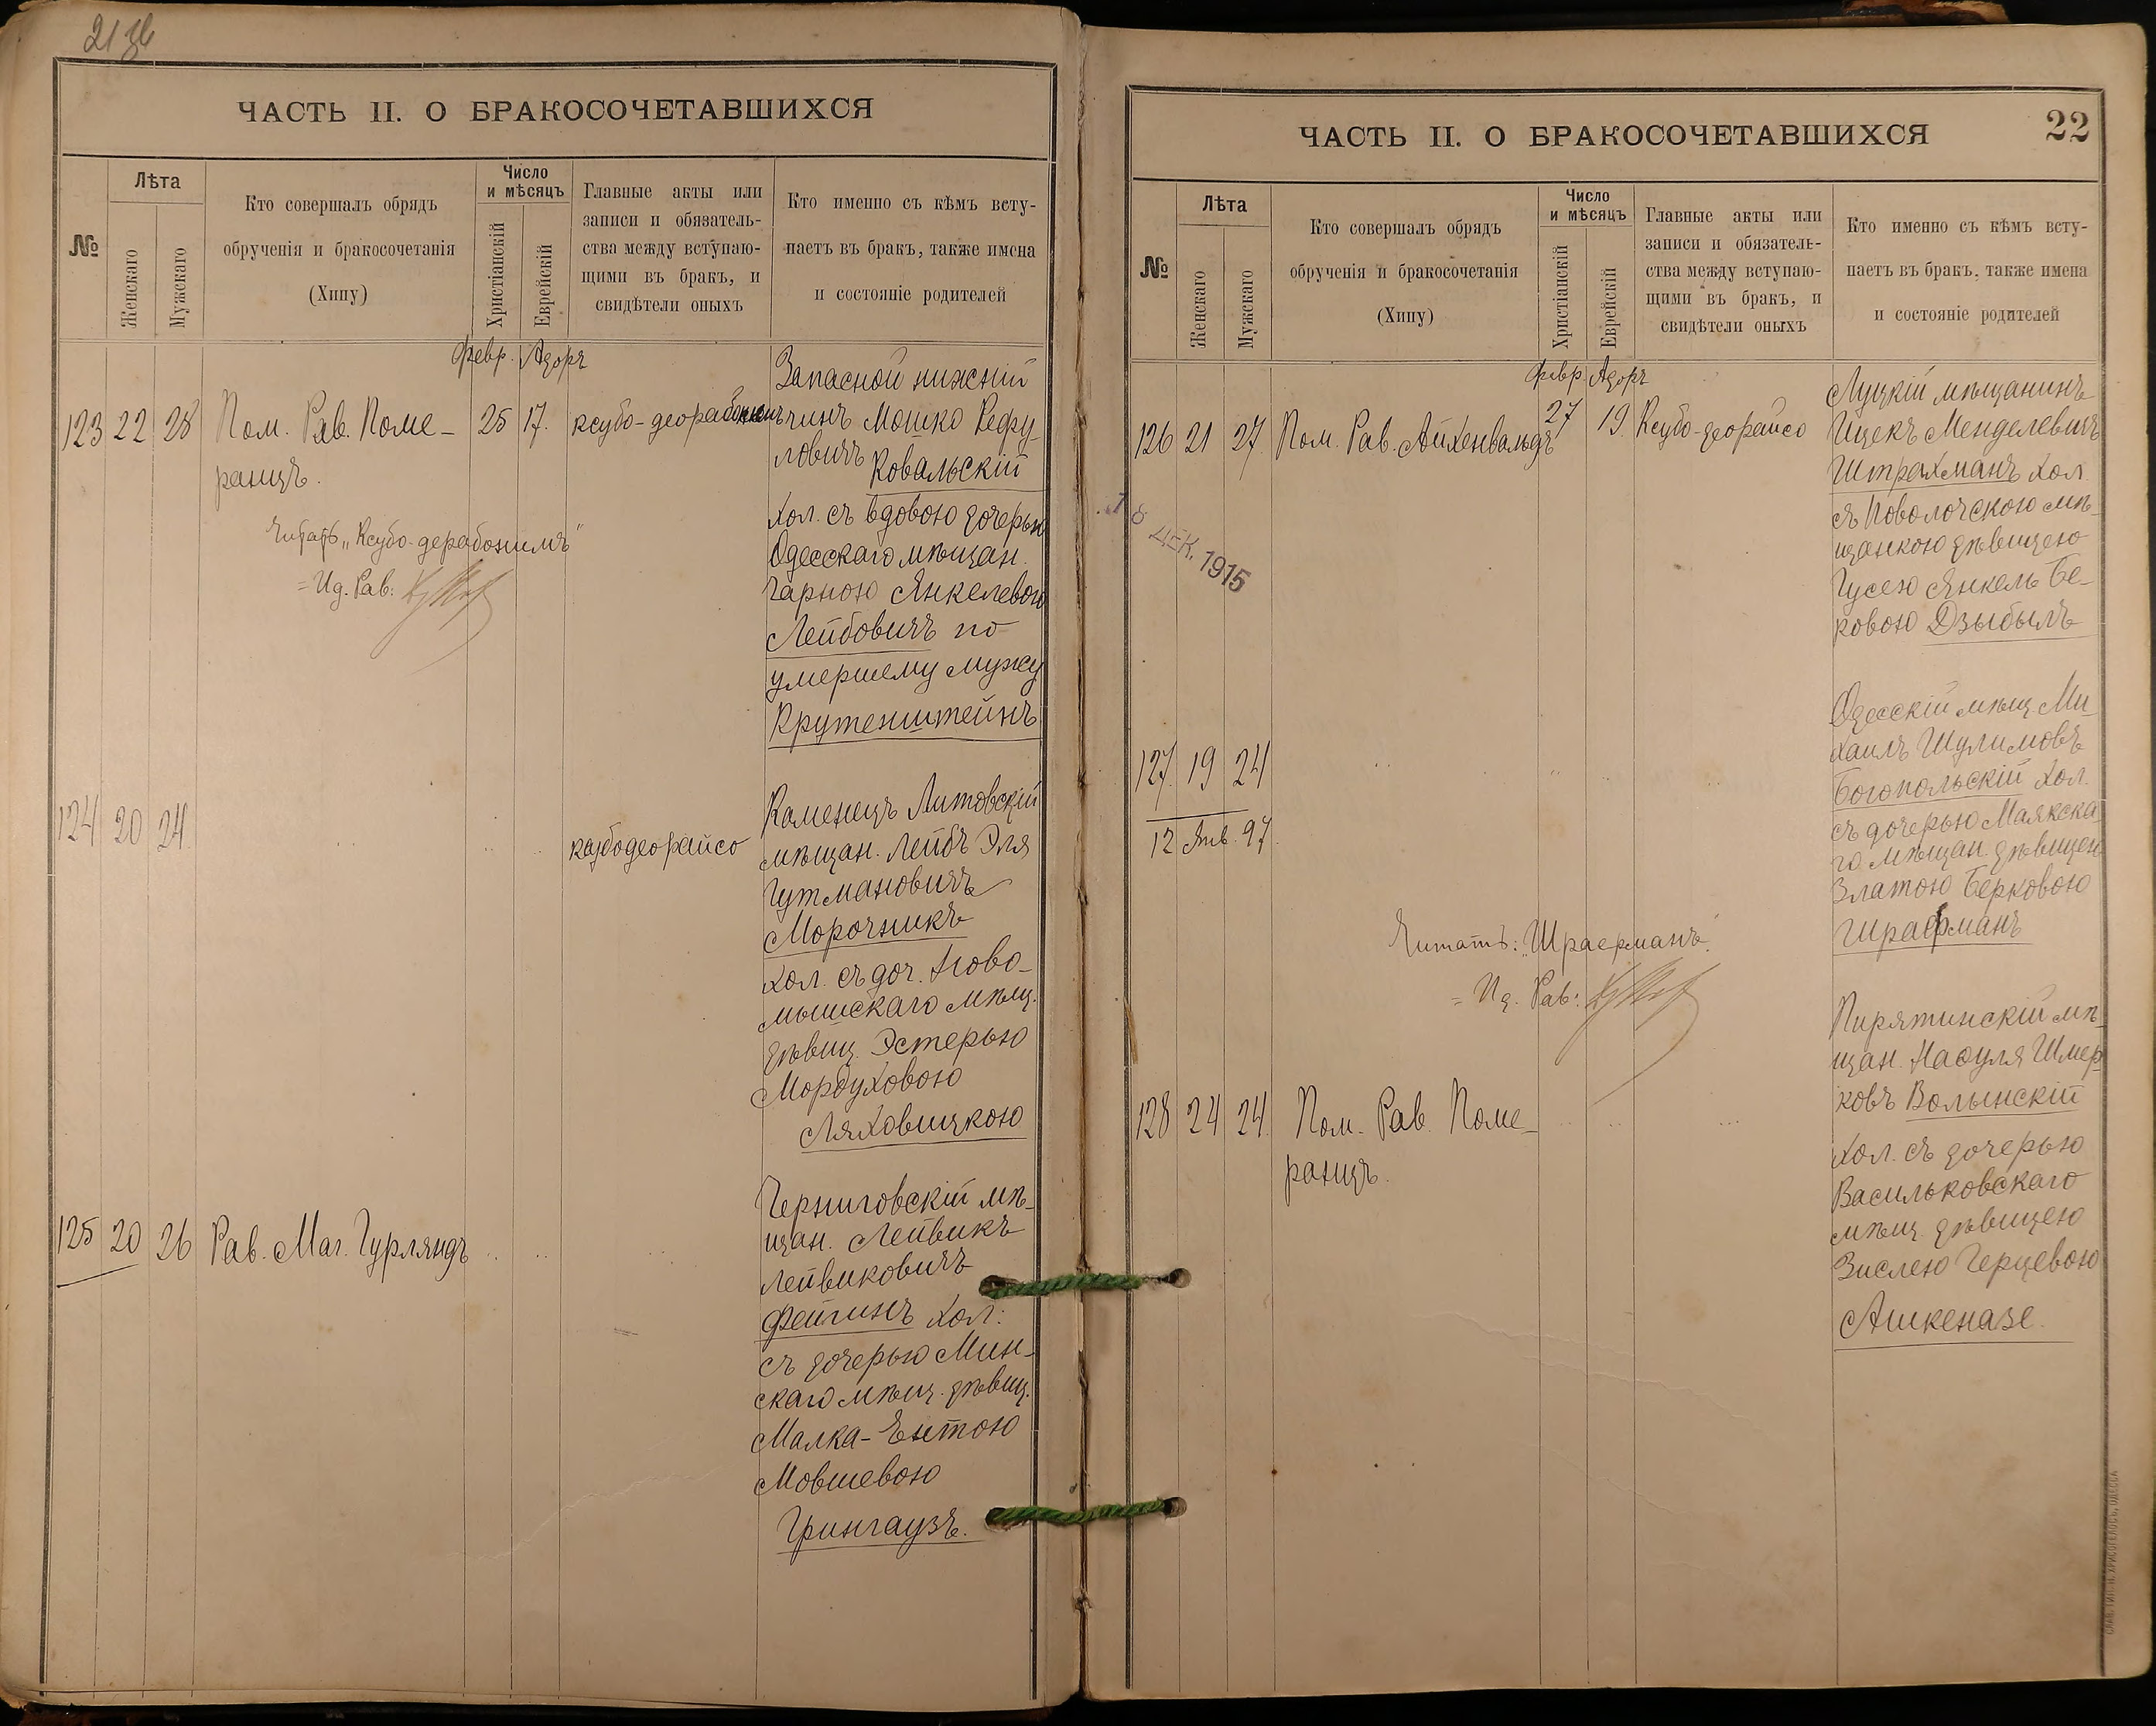 ЧАСТЬ II. О БРАКОСОЧЕТАВШИХСЯ
№
Лѣта
Женскаго
Мужскаго
Кто совершалъ обрядъ
обрученія и бракосочетанія
(Хипу)
Число
и мѣсяцъ
Христіанскій
Еврейскій
Главные акты или
записи и обязатель-
ства между вступаю-
щими въ бракъ, и
свидѣтели оныхъ
Кто именно съ кѣмъ всту-
паетъ въ бракъ, также имена
и состояніе родителей
Февр. Адоръ
123 22 28 Пом. Рав. Поме-
ранцъ.
25 17.
Читать „Ксубо-дерабонимъ"
= Ид. Рав:
Запасной нижній
чинъ Мошко Рефу-
ловичъ Ковальскій
хол. съ вдовою дочерью
Одесскаго мѣщан.
Чарною Янкелевою
Лейбовичъ по
умершему мужу
Крутенштейнъ
124 20 24. ксубодеорайсо
Каменецъ Литовскій
мѣщан. Лейбъ Эля
Гутмановичъ
Морочникъ
хол. съ доч. Ново-
мышскаго мѣщ.
дѣвиц. Эстерью
Мордуховою
Ляховицкою
125 20 26 Рав. Маг. Гурляндъ
Черниговскій мѣ-
щан. Лейвикъ
Лейвиковичъ
Фейгинъ хол:
съ дочерью Мин-
скаго мѣщ. дѣвиц.
Малка-Ентою
Мовшевою
Грингаузъ.
ЧАСТЬ II. О БРАКОСОЧЕТАВШИХСЯ
22
№
Лѣта
Женскаго
Мужскаго
Кто совершалъ обрядъ
обрученія и бракосочетанія
(Хипу)
Число
и мѣсяцъ
Христіанскій
Еврейскій
Главные акты или
записи и обязатель-
ства между вступаю-
щими въ бракъ, и
свидѣтели оныхъ
Кто именно съ кѣмъ всту-
паетъ въ бракъ, также имена
и состояніе родителей
Февр. Адоръ
126 21 27. Пом. Рав. Айхенвальдъ 27 19. Ксубо-деорайсо
ДЕК. 1915
Луцкій мѣщанинъ
Ицекъ Менделевичъ
Штрахманъ хол.
съ Поволочскою мѣ-
щанкою дѣвицею
Гусею Янкель Бе-
ковою Дзыбылъ
127. 19 24
12 Янв. 97.
Одесскій мѣщ. Ми-
хаилъ Шулимовъ
Богопольскій хол.
съ дочерью Маякска-
го мѣщан. дѣвицею
Златою Берковою
Шраерманъ
Читать: „Шраерманъ".
= Ид. Рав:
128 24 24. Пом. Рав. Поме-
ранцъ.
Пирятинскій мѣ-
щан. Насуля Шмер-
ковъ Волынскій
хол. съ дочерью
Васильковскаго
мѣщ. дѣвицею
Зислею Герцевою
Ашкеназе.